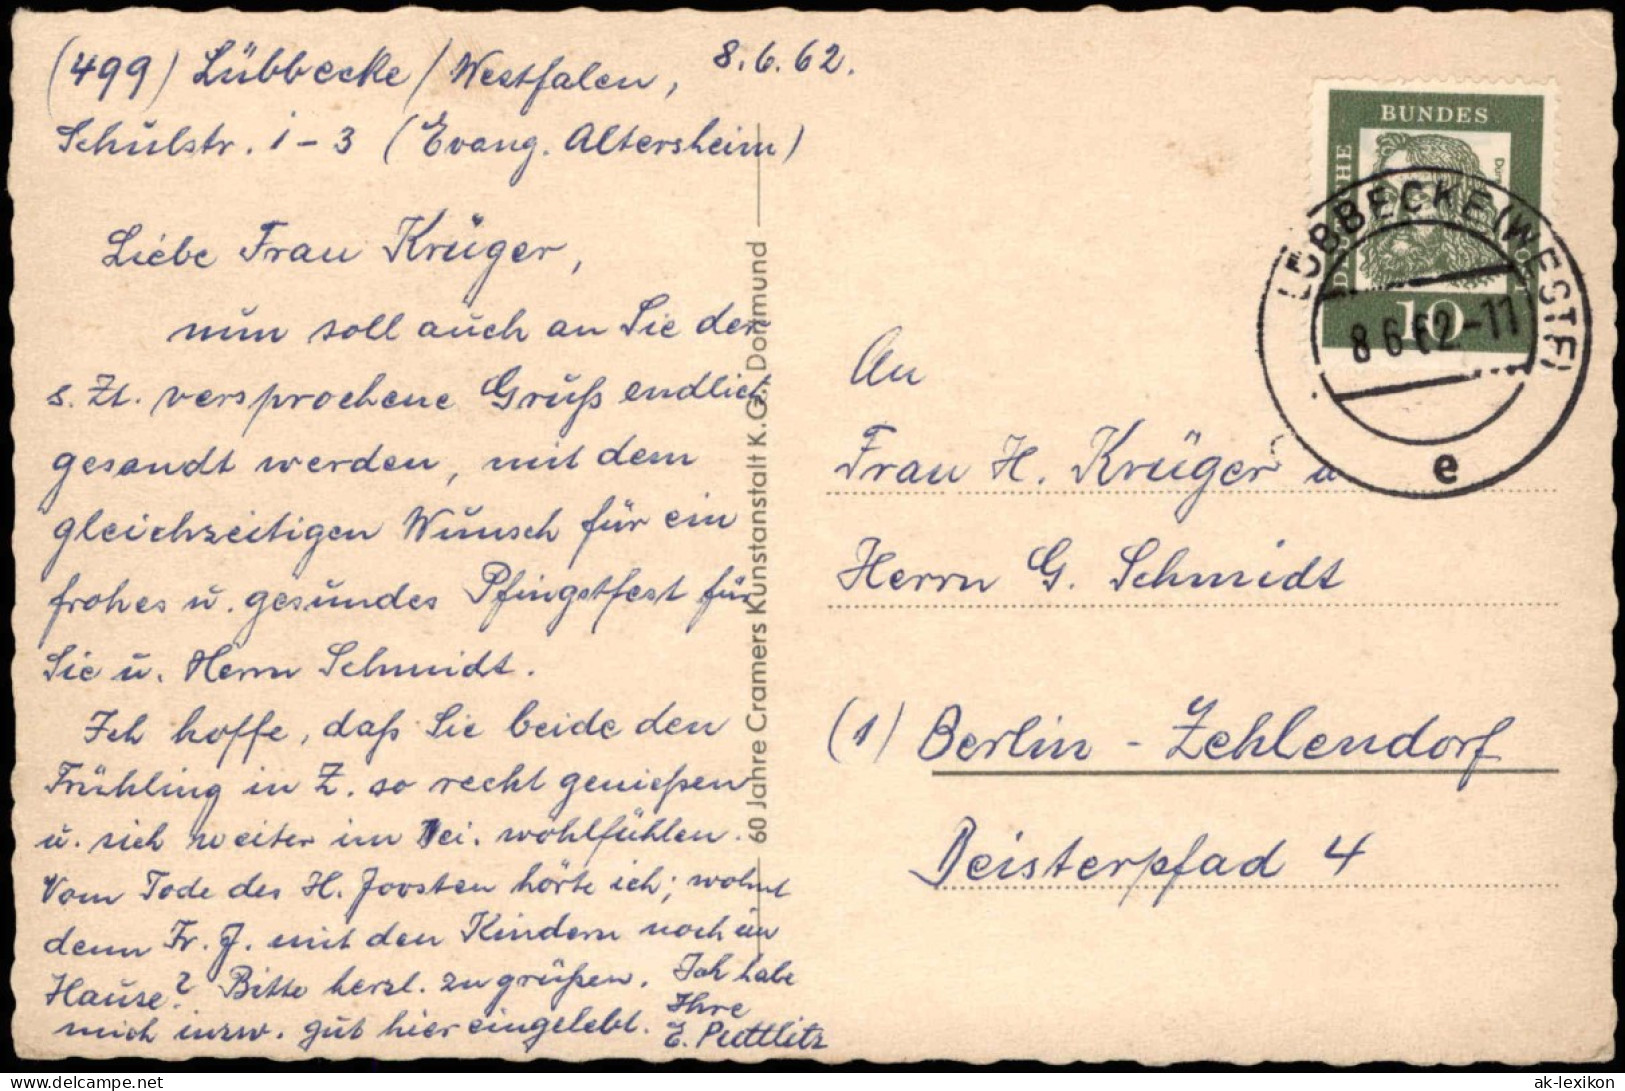 (499) Lübbecke / Westfalen, 8.6.62.
Schulstr. 1-3 (Evang. Altersheim)
Liebe Frau Krüger,
nun soll auch an Sie der
s. Zt. versprochene Gruß endlich
gesandt werden, mit dem
gleichzeitigen Wunsch für ein
frohes u. gesundes Pfingstfest für
Sie u. Herrn Schmidt.
Ich hoffe, daß Sie beide den
Frühling in Z. so recht genießen
u. sich weiter im Dei. wohlfühlen.
Vom Tode des H. Joosten hörte ich; wohnt
denn Fr. J. mit den Kindern noch im
Hause? Bitte herzl. zu grüßen. Ich habe
mich inzw. gut hier eingelebt. Ihre
E. Puttlitz
60 Jahre Cramers Kunstanstalt K.G., Dortmund
DEUTSCHE BUNDESPOST
Dürer
10
LÜBBECKE (WESTF)
8.6.62.-11
e
An
Frau H. Krüger u.
Herrn G. Schmidt
(1) Berlin - Zehlendorf
Deisterpfad 4
www.delcampe.net
ak-lexikon